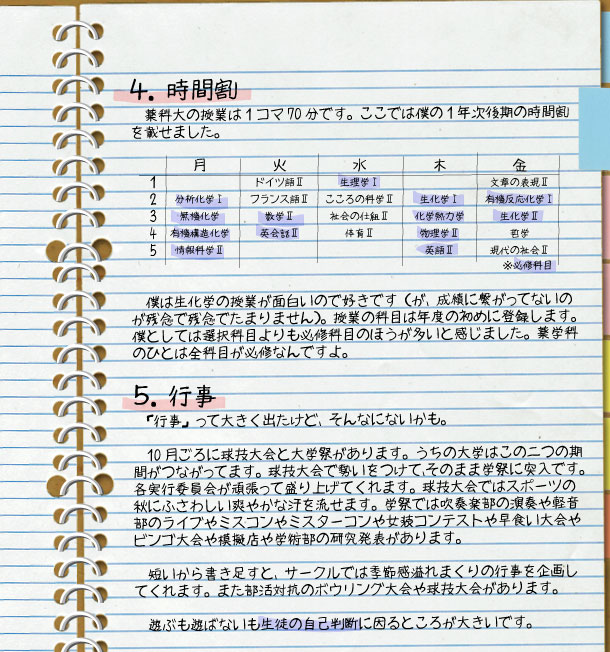 4. 時間割
薬科大の授業は1コマ70分です。ここでは僕の1年次後期の時間割
を載せました。
月 火 水 木 金
1 ドイツ語Ⅱ 生理学Ⅰ 文章の表現Ⅱ
2 分析化学Ⅰ フランス語Ⅱ こころの科学Ⅱ 生化学Ⅰ 有機反応化学Ⅰ
3 無機化学 数学Ⅱ 社会の仕組Ⅱ 化学熱力学 生化学Ⅱ
4 有機構造化学 英会話Ⅱ 体育Ⅱ 物理学Ⅱ 哲学
5 情報科学Ⅱ 英語Ⅱ 現代の社会Ⅱ
※必修科目
僕は生化学の授業が面白いので好きです（が、成績に繋がってないの
が残念で残念でたまりません）。授業の科目は年度の初めに登録します。
僕としては選択科目よりも必修科目のほうが多いと感じました。薬学科
のひとは全科目が必修なんですよ。
5. 行事
「行事」って大きく出たけど、そんなにないかも。
10月ごろに球技大会と大学祭があります。うちの大学はこの二つの期
間がつながってます。球技大会で勢いをつけて、そのまま学祭に突入です。
各実行委員会が頑張って盛り上げてくれます。球技大会ではスポーツの
秋にふさわしい爽やかな汗を流せます。学祭では吹奏楽部の演奏や軽音
部のライブやミスコンやミスターコンや女装コンテストや早食い大会や
ビンゴ大会や模擬店や学術部の研究発表があります。
短いから書き足すと、サークルでは季節感溢れまくりの行事を企画し
てくれます。また部活対抗のボウリング大会や球技大会があります。
遊ぶも遊ばないも生徒の自己判断に因るところが大きいです。